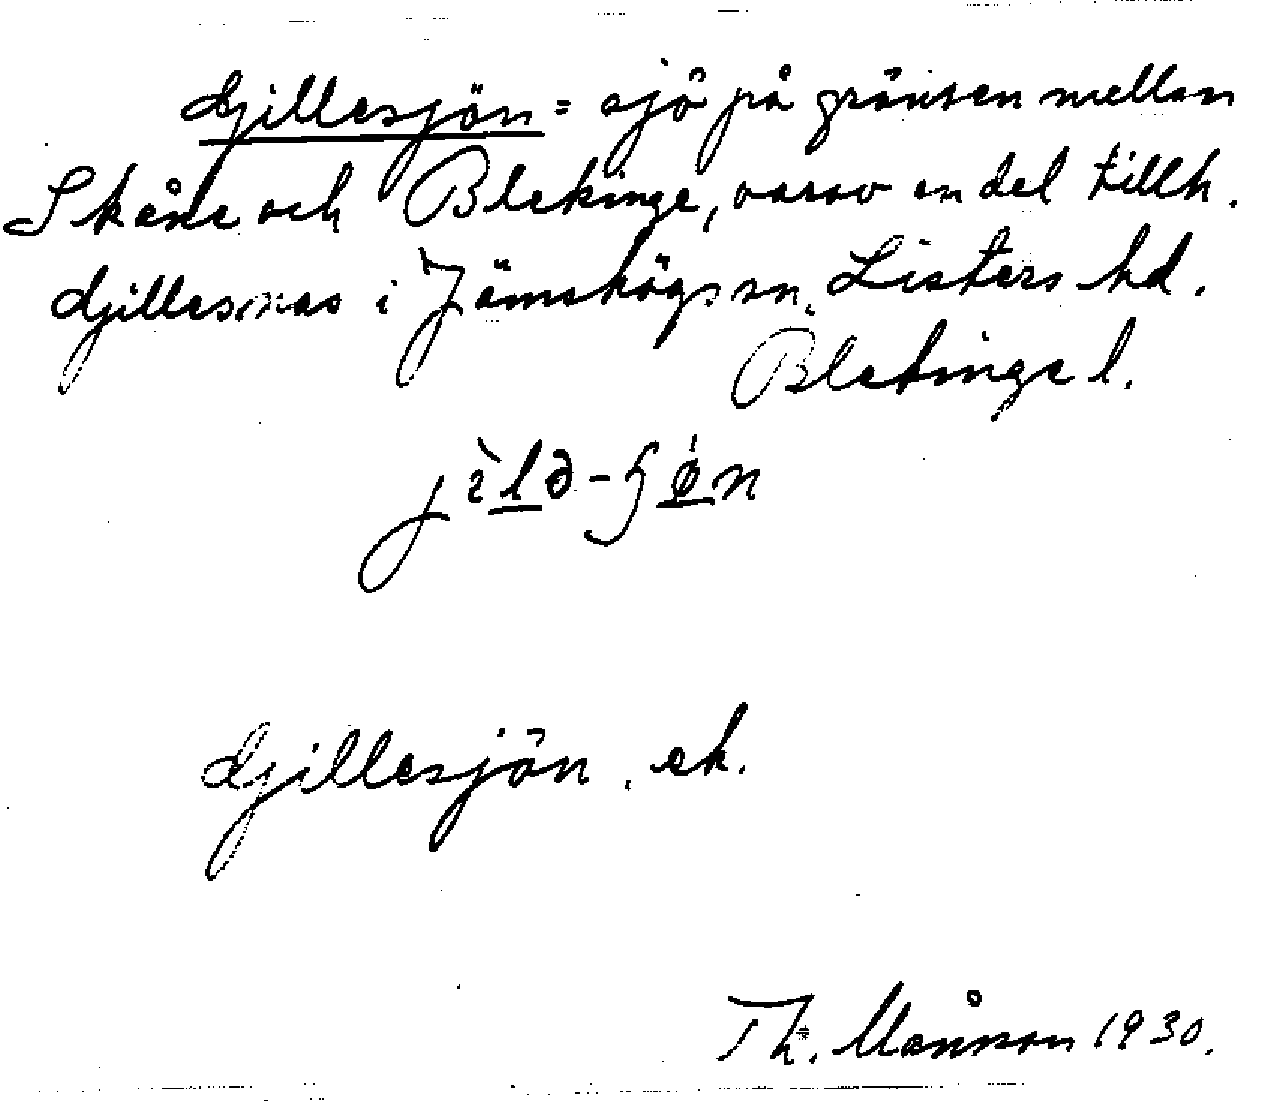 Gillesjön = sjö på gränsen mellan
Skåne och Blekinge, varav en del tillh.
Gillesnäs i Jämshögs sn, Listers hd.
Blekinge l.
jìlə-ʃøn
Gillesjön. ek.
Th. Månsson 1930.